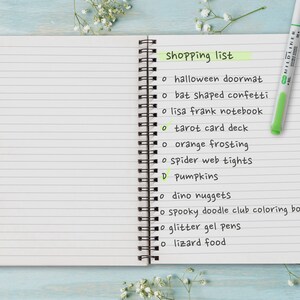 shopping list
o halloween doormat
o bat shaped confetti
o lisa frank notebook
o tarot card deck
o orange frosting
o spider web tights
o pumpkins
o dino nuggets
o spooky doodle club coloring bo
o glitter gel pens
o lizard food